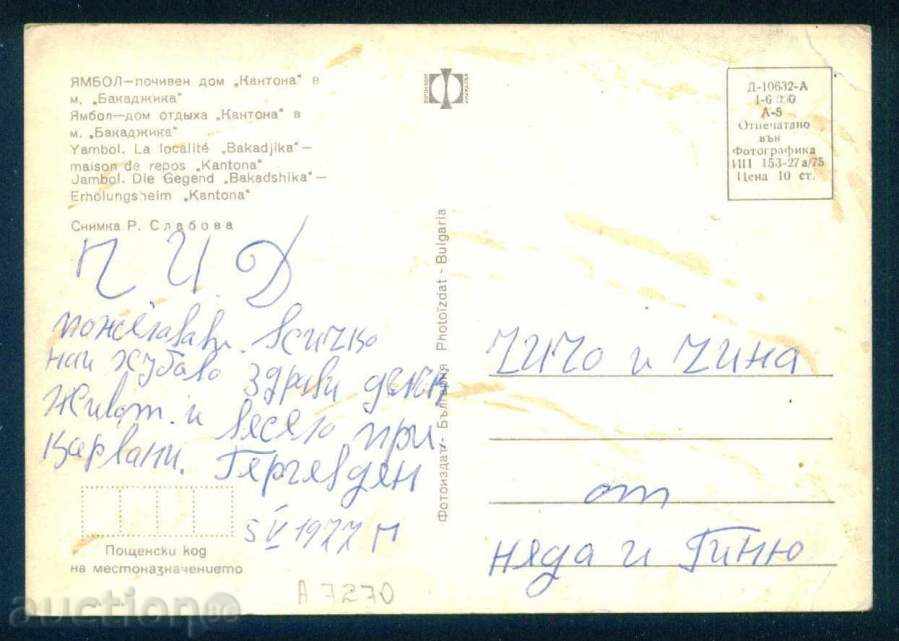 ЯМБОЛ—почивен дом „Кантона" в
м. „Бакаджика"
Ямбол—дом отдыха „Кантона" в
м. „Бакаджика"
Yambol. La localité „Bakadjika"—
maison de repos „Kantona"
Jambol. Die Gegend „Bakadshika"—
Erholungsheim „Kantona"
Снимка Р. Слабова
Д-10632-А
А-8
Отпечатано
във
Фотографика
ИП 153-27а/75
Цена 10 ст.
Ч И Д
пожелавам всичко
най хубаво здраве дълъг
живот и весело при
карвани. Гергевден
5 V 1977 г
Фотоиздат - България Photoizdat - Bulgaria
чичо и чина
от
няда и Гиню
Пощенски код
на местоназначението
А 7270
auction